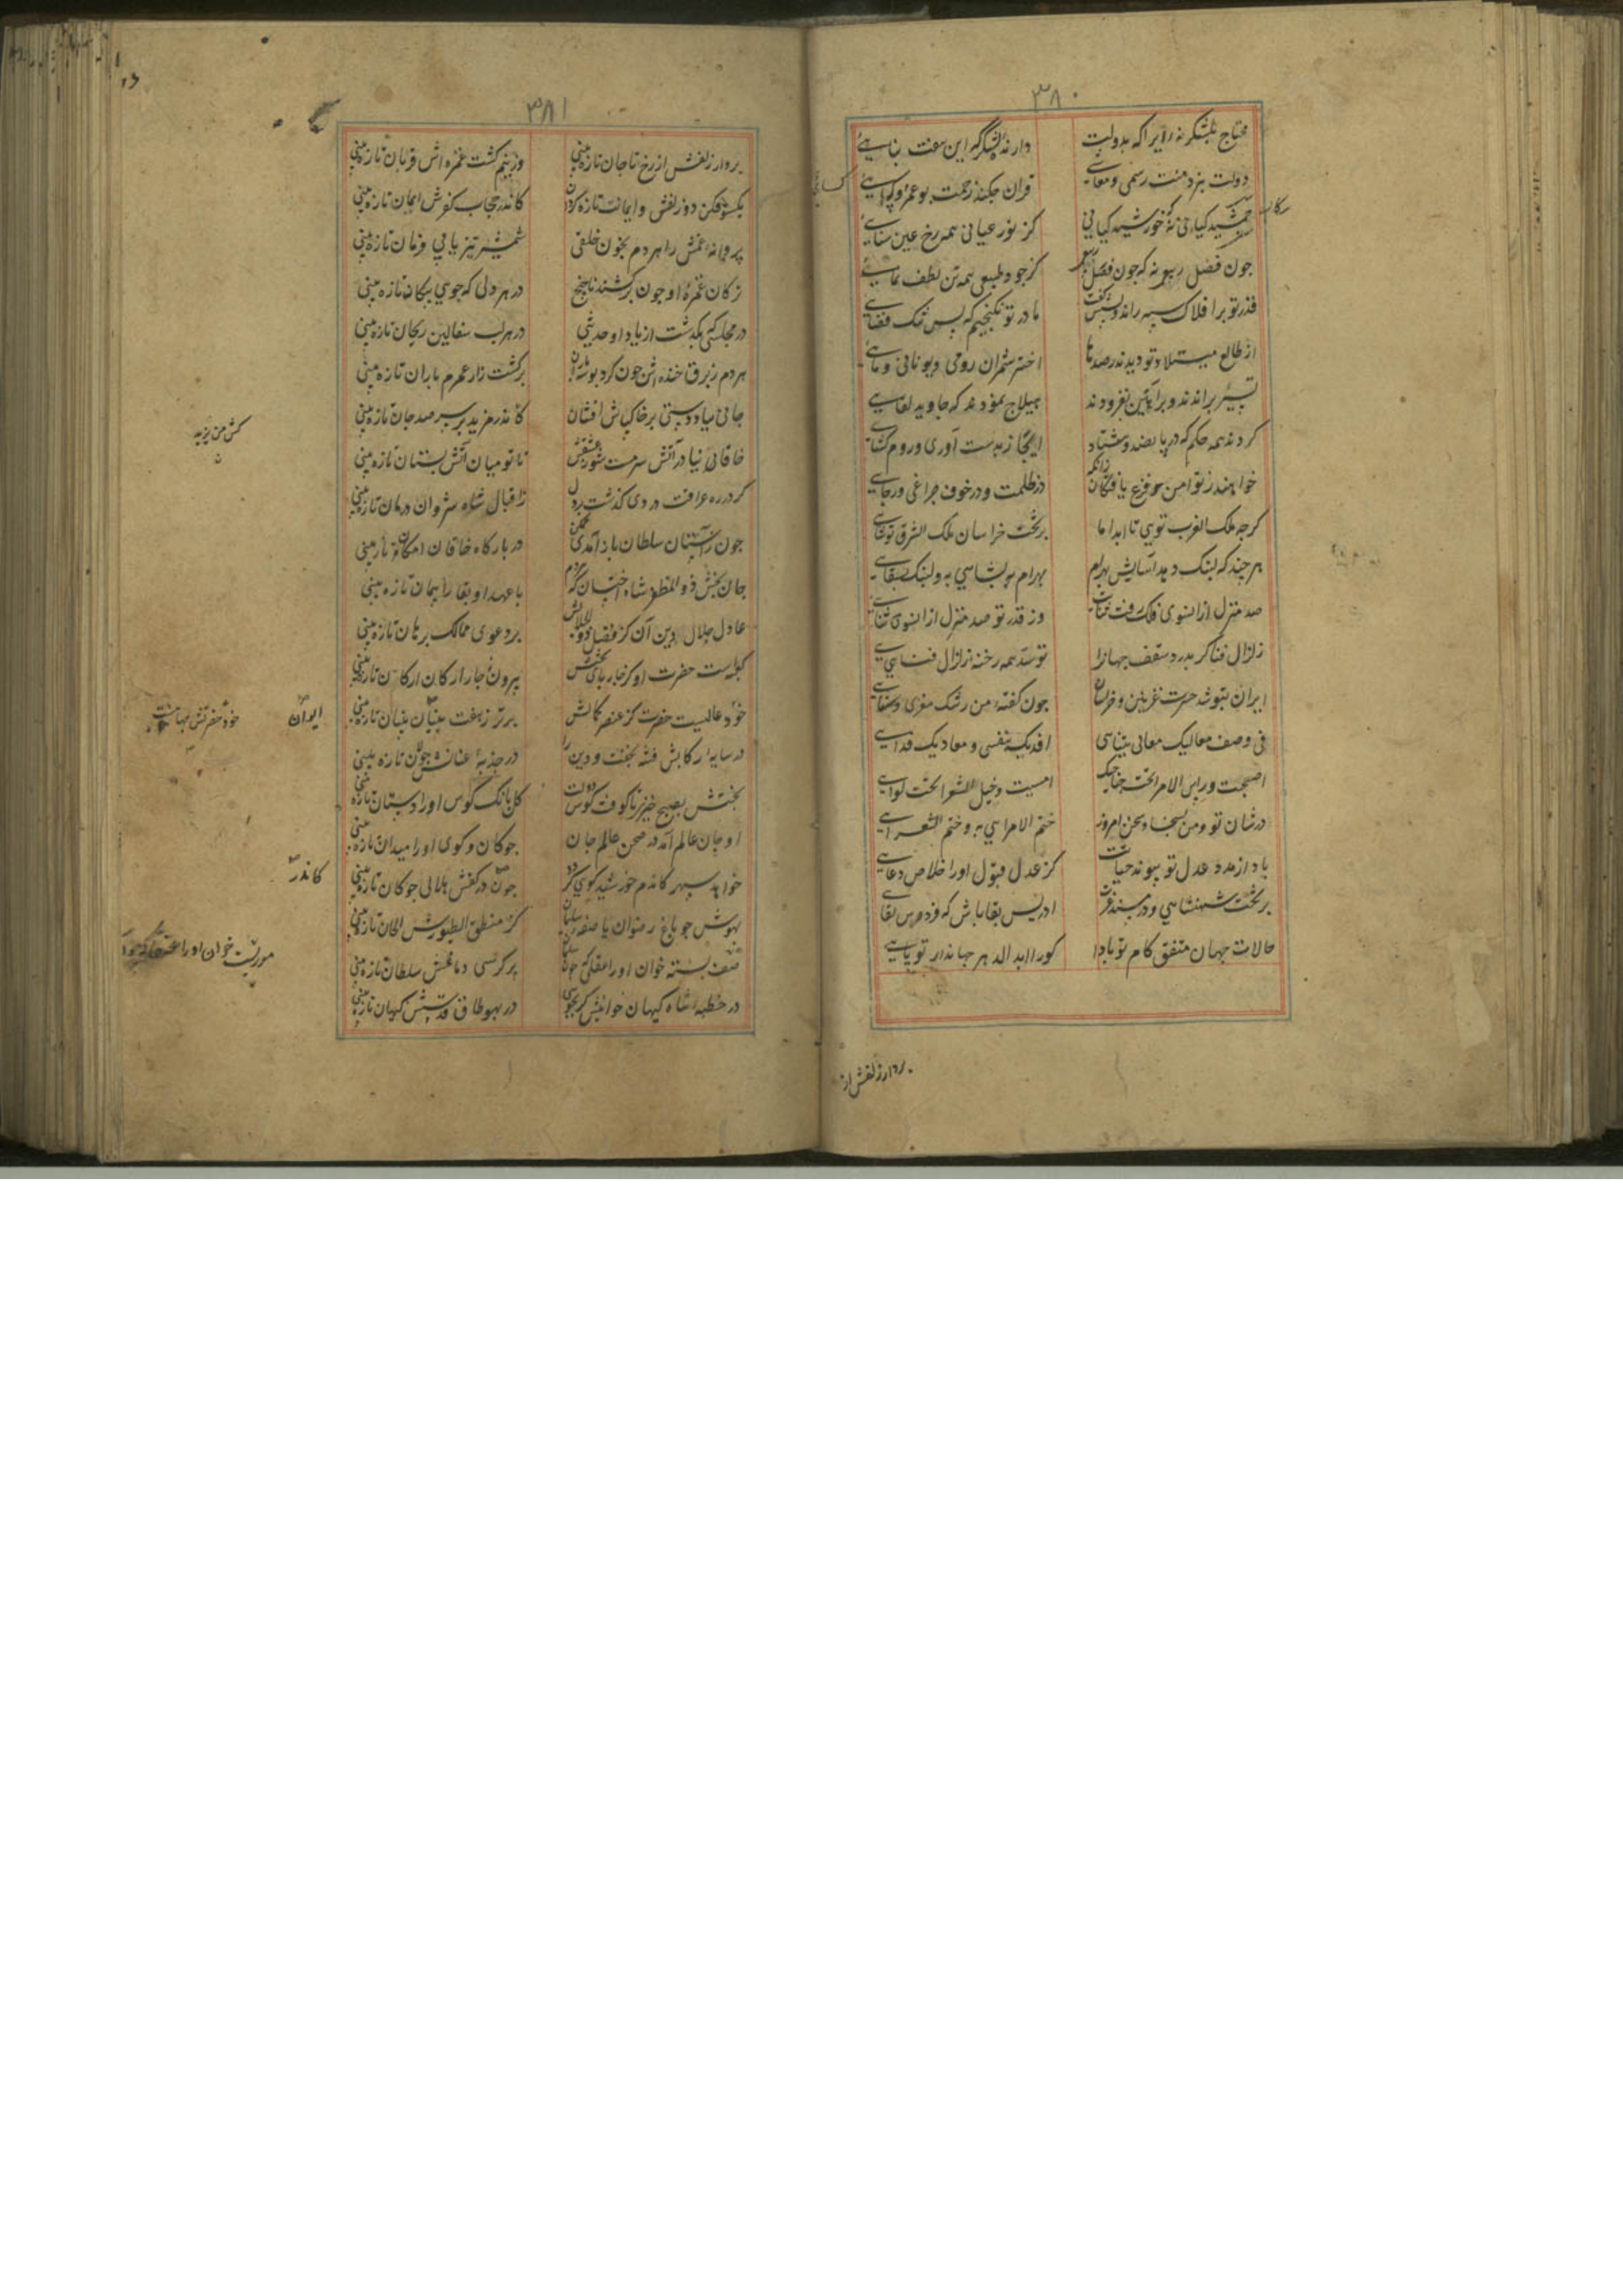 ٣٨٠
محتاج بلشکر نه ازیرا که بدولت دارنده لشکرگه این هفت بنایی
دولت نبرد منت رسمی و معاشی قران چکند زحمت بوعمرو و کسایی
جمشید کیانی نه که خورشید کیانی کز نور عیانی همه رخ عین سنایی
جون فضل ربیع نه که جون فصل ربیع کز جود طبیعی همه تن لطف نمایی
قدر تو بر افلاک سپه راند و پس گفت ما در تو نکنجیم که بس تنک فضایی
از طالع میلاد تو دیدند رصدها اختر شمران رومی و یونانی و مایی
تسییر براندند و براهین بفزودند هیلاج نمودند که جاوید لقایی
کردند همه حکم که در پانصد و هشتاد ابخاز بدست آوری و روم کشایی
خواهند ز تو امن و فزع یافتگان زانک در ظلمت و در خوف چراغی و رجایی
کرچه ملک الغرب تویی تا ابد اما بر تخت خراسان ملک الشرق تو شایی
هر چند که لنبک دهد آسایش بهرام بهرام بهشاهی به و لنبک بسقایی
صد منزل از انسوی فلک رفت ثنایت وز قدر تو صد منزل از انسوی ثنایی
زلزال فنا کر بدرد سقف جهانرا تو سد همه رخنه زلزال فنایی
ایران بتو شد حسرت غزنین و خراسان جون گفته من رشک معزی و سنایی
فی وصف معالیک معانی یتناهی افدیک بنفسی و معادیک فدایی
اصبحت و راس الامرا تحت جنابک امسیت و خیل الشعرا تحت لوایی
در شان تو و من بسخا و سخن امروز ختم الامرایی به و ختم الشعرایی
باد از مدد عدل تو پیوند حیات کز عدل قبول اورد اخلاص دعایی
بر تخت شهنشاهی و در مسند عزت ادریس بقا باش که فردوس لقایی
حالات جهان متفق کام تو بادا کورا ابد الدهر جهاندار تو پایی
رکاب
کسایی
بردار زلفش از
٣٨١
بردار زلفش از رخ تا جان تازه بینی وز نیم کشت غمزه اش قربان تازه بینی
یکسو فکن دو زلفش و ایمانت تازه کردان کاندر حجاب کفرش ایمان تازه بینی
پروانه غمش را هر دم بخون خلقی شمشیر تیز یابی فرمان تازه بینی
ترکان غمزه او جون درکشند ناچخ در هر دلی که جویی پیکان تازه بینی
در مجلسی که بگذشت از یاد او حدیثی در هر لب سفالین ریحان تازه بینی
هر دم ز برق خنده اش جون کرد بوسه باران بر کشت زار عمرم باران تازه بینی
جانی بیاد دستی بر خاک پاش افشان کاندر مزید هر سر صد جان تازه بینی
خاقانی نیا در آتش سرمست شور عشقش تا تو میان آتش بستان تازه بینی
کر در ره عراقت دردی گذشت بر دل ز اقبال شاه شروان درمان تازه بینی
جون ز آستان سلطان باز آمدی ممکن در بارگاه خاقان امکان تازه بینی
جان بخش ذوالمظفر شاه اخستان که هردم با عهد او بقا را پیمان تازه بینی
عادل جلال دین آن کز فضل ذوالجلالش بر دعوی ممالک برهان تازه بینی
کعبه است حضرت او کز چار پای تختش بیرون ز چار ارکان ارکان تازه بینی
خود عالمیست حضرت کز عنصر کمالش برتر ز هفت بنیان بنیان تازه بینی
در سایه رکابش فتنه بخفت و دین را در جذبه عنانش جولان تازه بینی
بختش بصبح خیزی تا کوفت کوس دولت گلبانگ کوس او را دستان تازه بینی
او جان عالم آمد در صحن عالم جان جوکان و کوی او را میدان تازه بینی
خواهد سپهر کاندم خورشید کوی کردد جون در کفش هلالی جوکان تازه بینی
بهوش جو باغ رضوان یا صفه سلیمان کز منطق الطیورش الحان تازه بینی
صف بسته خوان او را عقلی که بر کرسی دماغش سلطان تازه بینی
در خطبه شاه کیهان خوانیش کر بجویی در بهو طاق قدسش کیهان تازه بینی
کش من یزید
ایوان
خود حضرتش جهانیست
کاندر
موریست خوان او را عنقا که